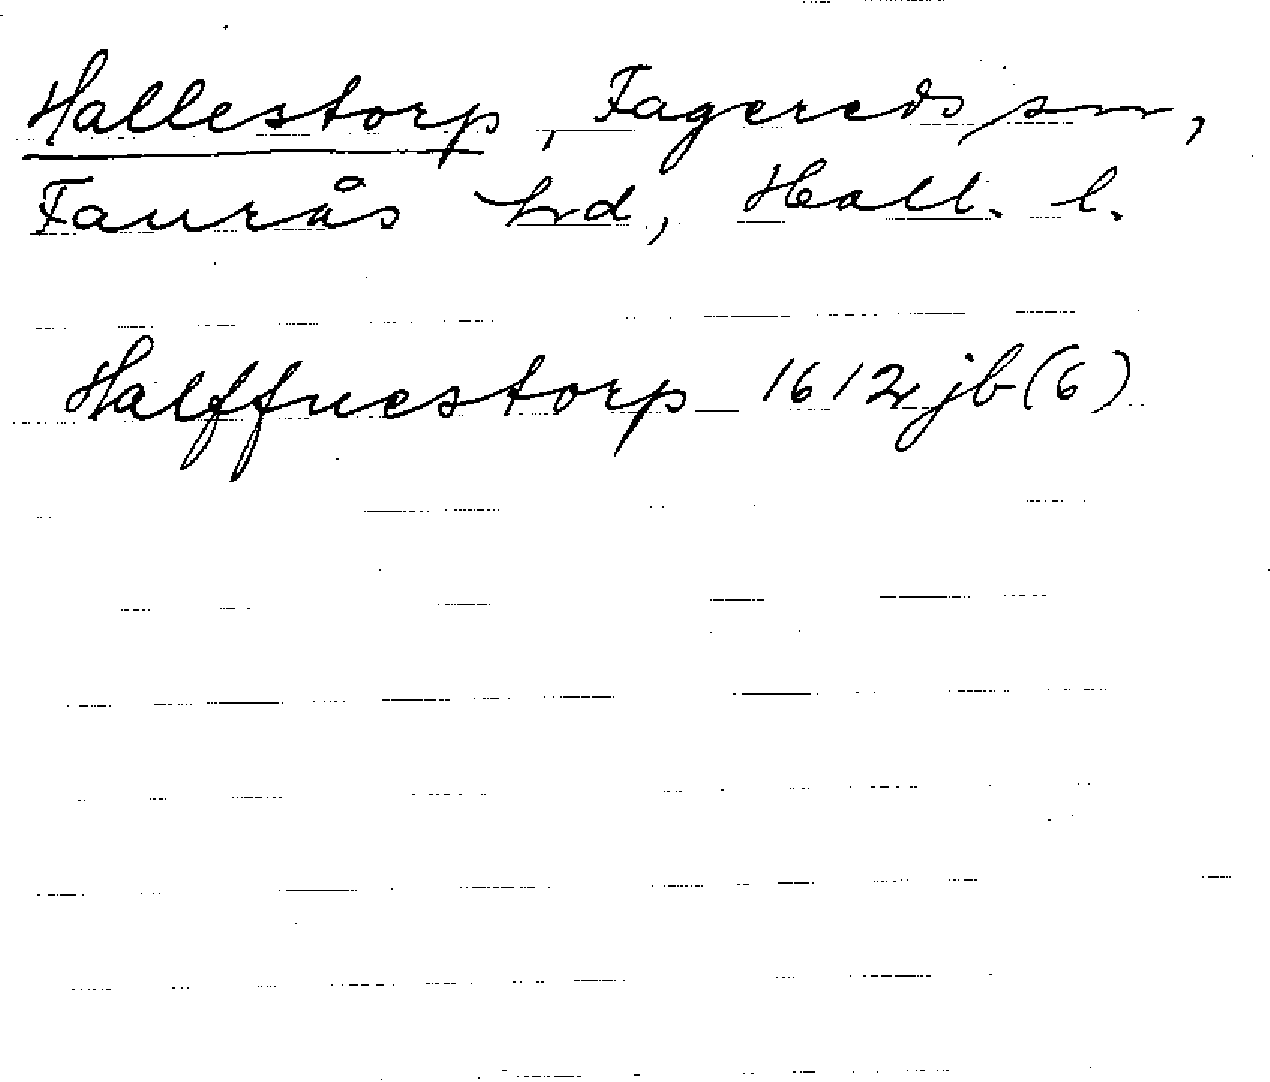 Hallestorp, Fagereds sn,
Faurås hd, Hall. l.
Halffnestorp 1612 jb (6)